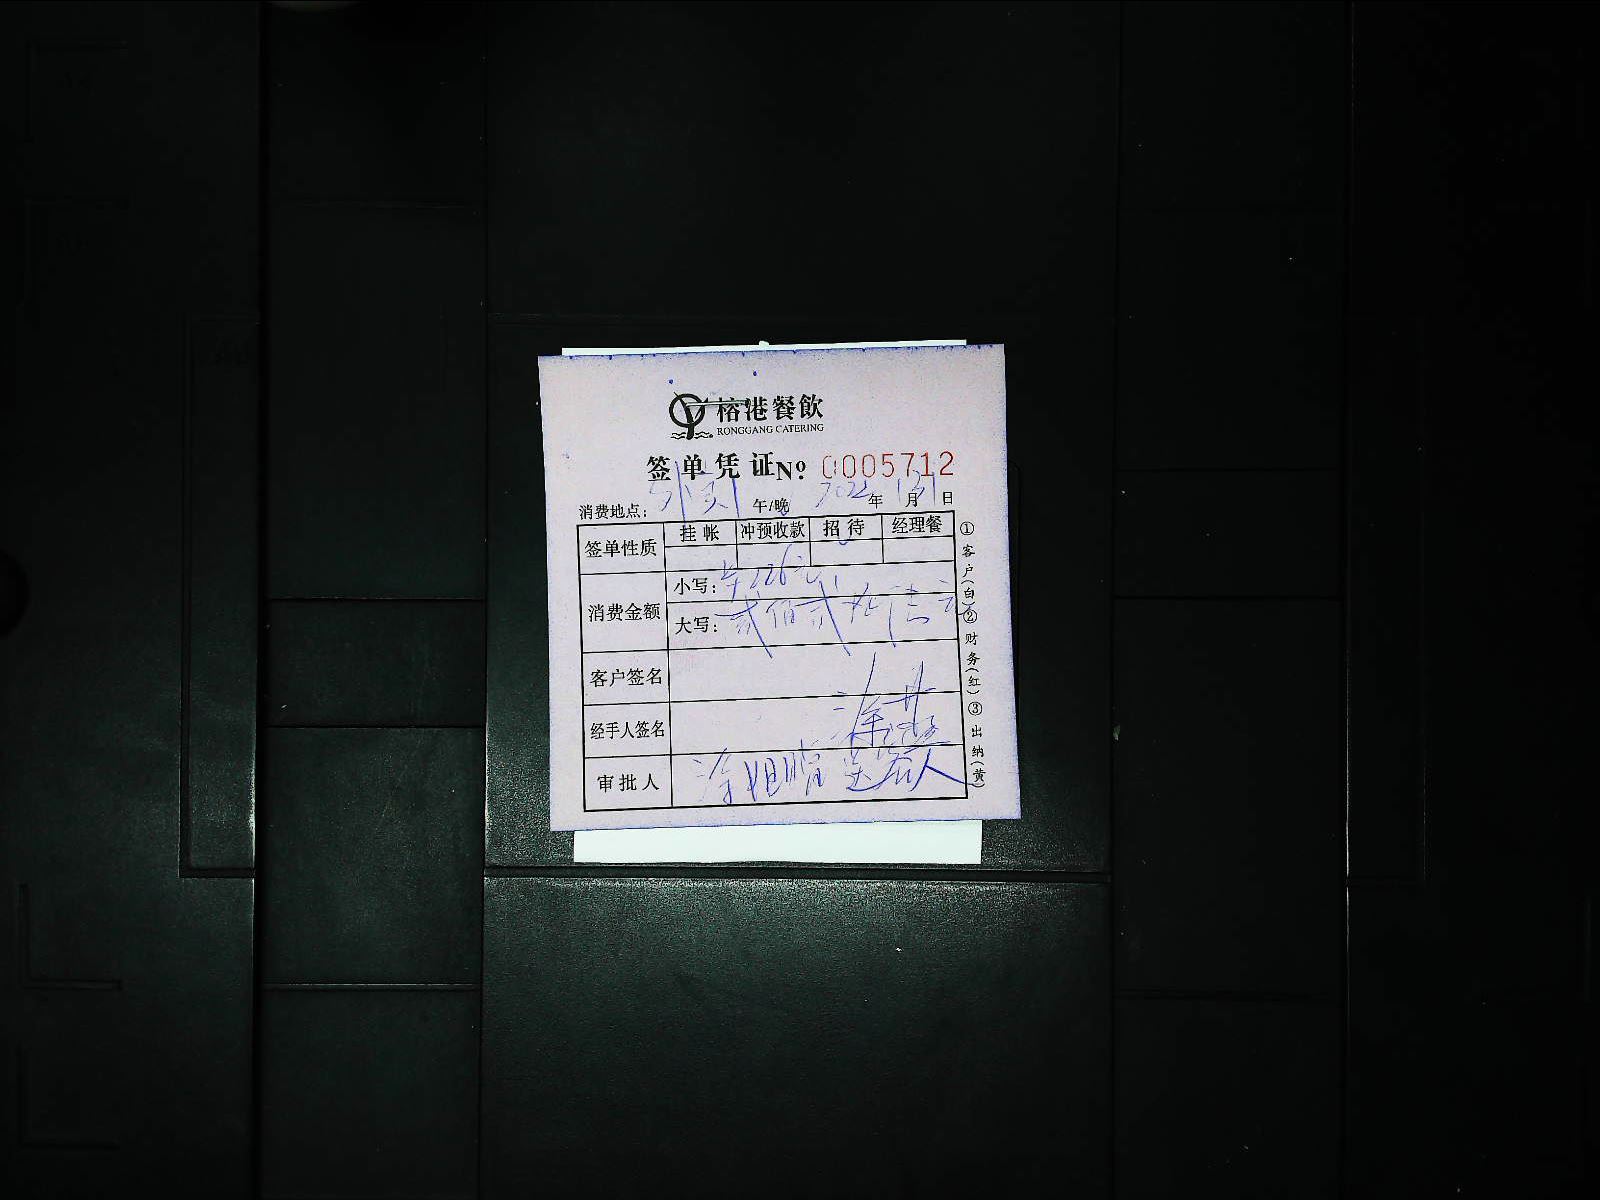 榕港餐飲
RONGGANG CATERING
签单凭证 № 0005712
消费地点： 午/晚 2022年1月31日
签单性质 挂帐 冲预收款 招待 经理餐
消费金额 小写：¥226元
大写：贰佰贰拾陆元
客户签名
经手人签名 涂
审批人
①客户(白)②财务(红)③出纳(黄)